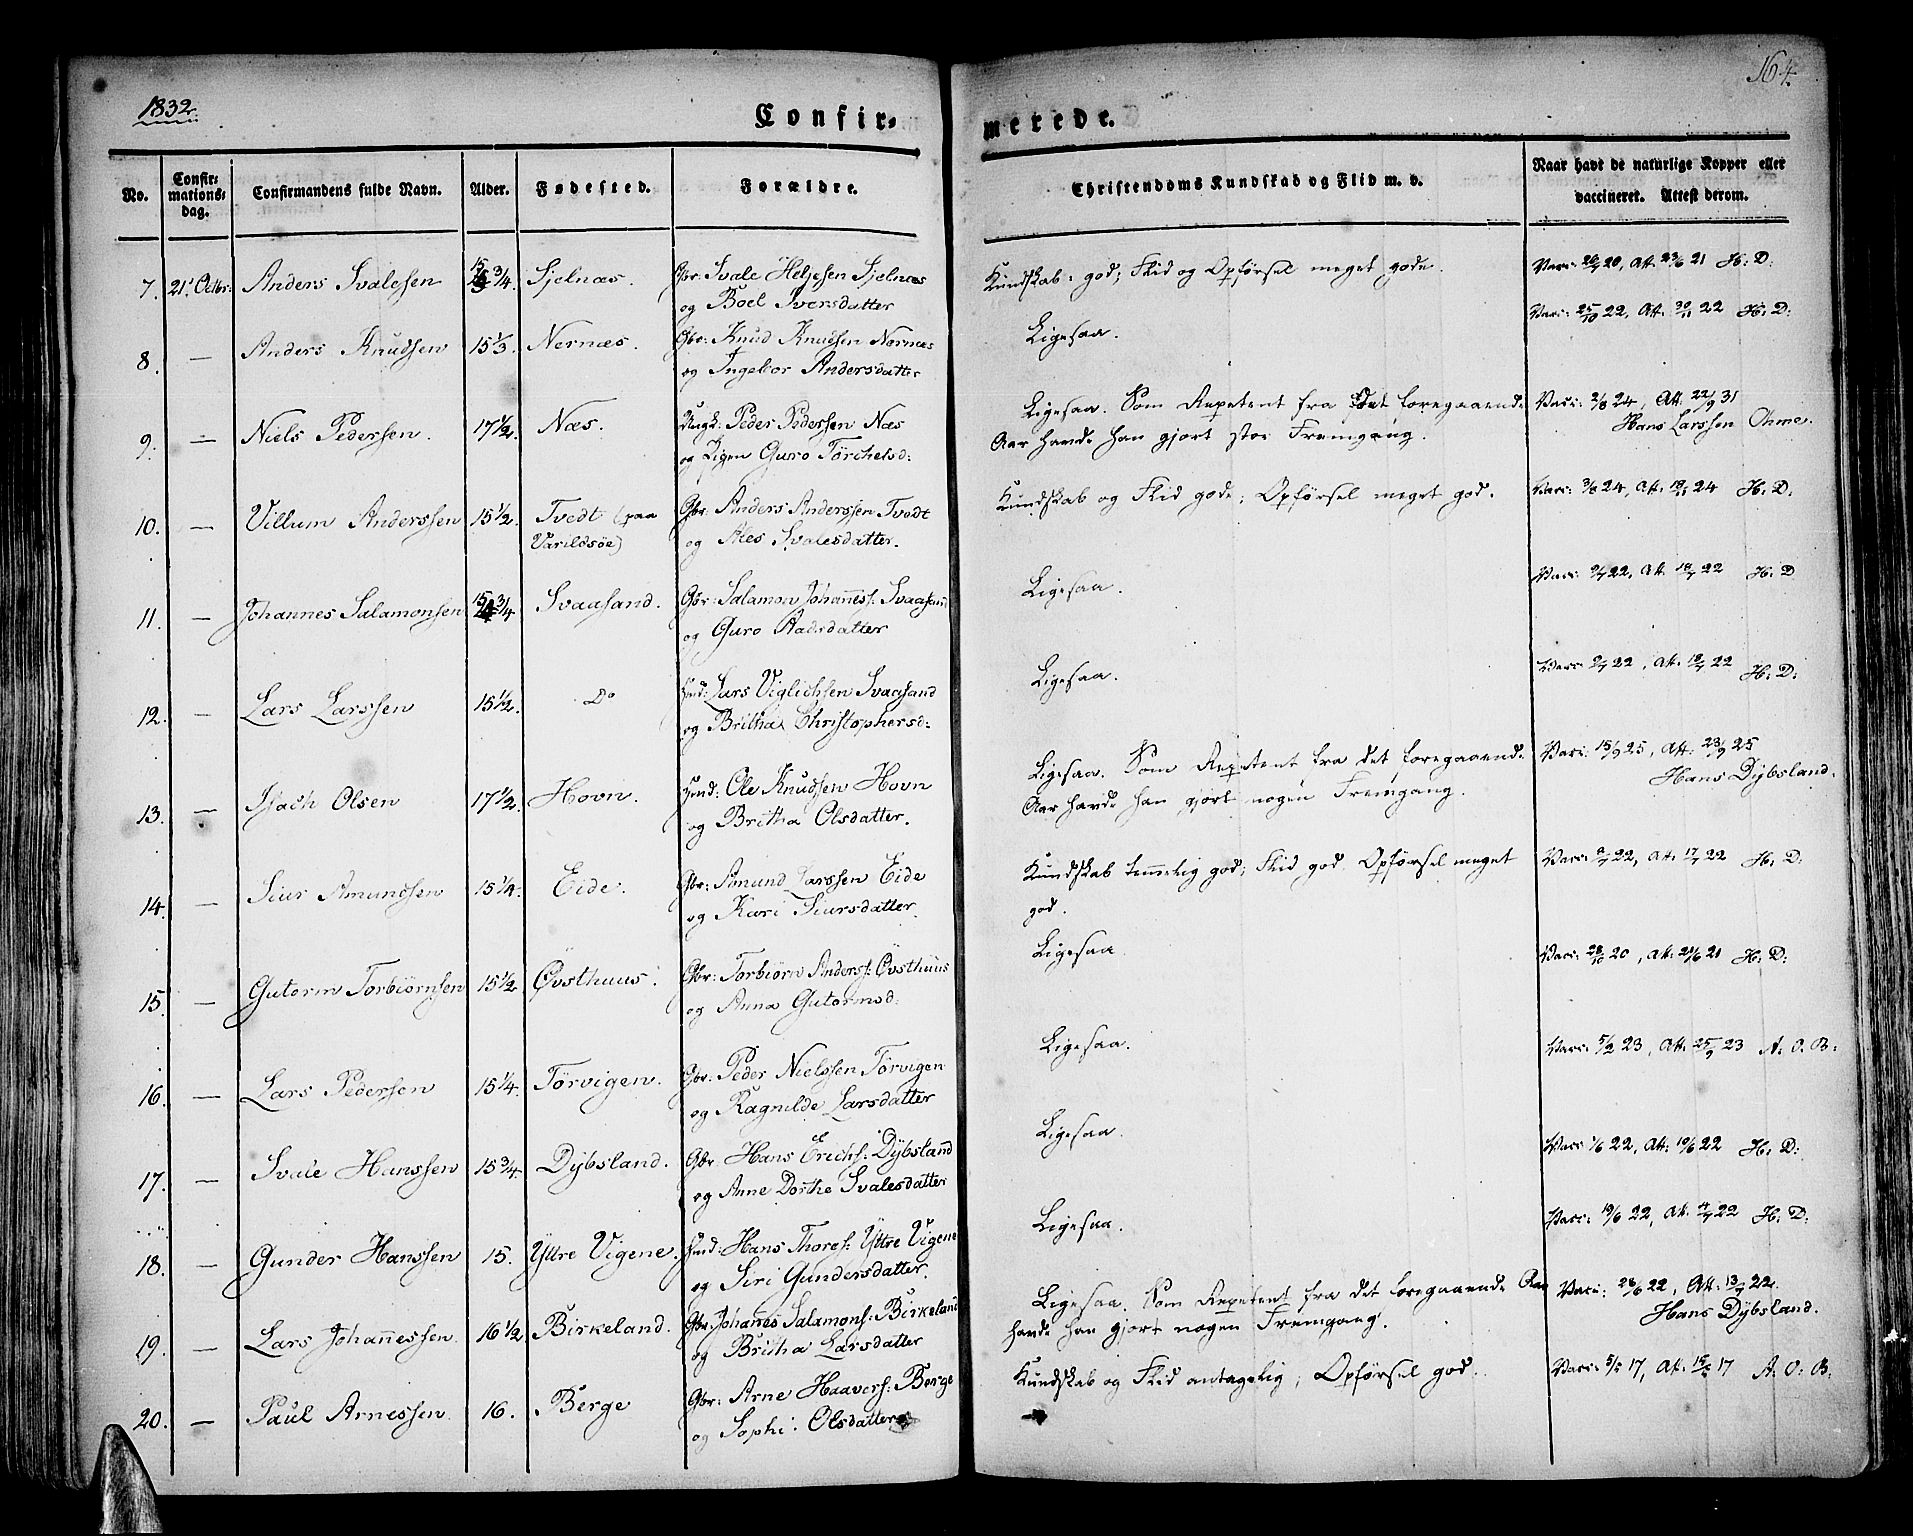 1832.
164.
Confir-
merede.
No.
Confir-
mations-
dag.
Confirmandens fulde Navn.
Alder.
Fødested.
Forældre.
Christendoms Kundskab og Flid m. v.
Naar havt de naturlige Kopper eller
vaccineret. Attest derom.
7. 21' Octbr: Anders Svalesen 15 3/4. Sjelnæs. Gbr: Svale Heljesen Sjelnæs
og Boel Iversdatter
Kundskab: god; Flid og Opførsel meget gode.
Vacc: 20, Att. 23/6 21 H: D:
8. — Anders Knudsen 15 1/3. Nernæs. Gbr: Knud Knudsen Nernæs
og Ingebor Andersdatter
Ligesaa.
Vacc: 25/10 22, Att. 30/11 22 H: D:
9. — Niels Pederssen. 17 1/2. Næs. Peder Pederssen Næs
og Pigen Guro Törchelsd:
Ligesaa. Som Repetent fra det foregaaende
Aar havde han gjort stor Fremgang.
Vacc: 2/8 24, Att. 22/9 31
Hans Larssen Ohme.
10. — Villum Anderssen 15 1/2. Tvedt (paa
Varildsöe)
Gbr: Anders Anderssen Tvedt
og Ales Svalesdatter.
Kundskab og Flid gode; Opførsel meget god.
Vacc: 3/8 24, Att. 24 H: D:
11. — Johannes Salamonsen 15 3/4 Svaasand. Gbr: Salamon Johaness: Svaasand
og Guro Aadsdatter
Ligesaa.
Vacc: 9/7 22, Att. 18/7 22 H: D
12. — Lars Larssen 15 1/2. Do Lars Viglichsen Svaasand
og Britha Christophersd:
Ligesaa.
Vacc: 9/7 22, Att. 18/7 22 H: D:
13. — Isach Olsen 17 1/2. Hovn. Ole Knudssen Hovn
og Britha Olsdatter.
Ligesaa. Som Repetent fra det foregaaende
Aar havde han gjort nogen Fremgang.
Vacc: 15/9 25, Att: 23/9 25
Hans Dÿbsland.
14. — Siur Amundsen 15 1/4. Eide. Gbr: Amund Larssen Eide
og Kari Siursdatter.
Kundskab temmelig god; Flid god. Opførsel meget
god.
Vacc: 22, Att: 17/7 22 H: D:
15. — Gutorm Torbiörnsen 15 1/2 Øvsthuus. Gbr: Torbiörn Anderss: Øvsthuus
og Anna Gutormsd:
Ligesaa
Vacc: 28/10 20, Att: 21 H: D:
16. — Lars Pedersen 15 1/4. Törvigen. Gbr: Peder Nielssen Törvigen
og Ragnilde Larsdatter
Ligesaa.
Vacc: 5/2 23, Att: 25/9 23 A: O: B:
17. — Svale Hanssen 15 3/4. Dÿbsland. Gbr. Hans Erichs: Dÿbsland
og Anne Dorthe Svalesdatter
Ligesaa.
Vacc 1/6 22, Att: 10/6 22 H: D:
18. — Gunder Hanssen 15. Yttre Vigene. Hans Thores: Yttre Vigene
og Siri Gundersdatter.
Ligesaa.
Vacc: 19/6 22, Att: 4/7 22 H: D:
19. — Lars Johannessen 16 1/2 Birkeland. Gbr: Johannes Salamons: Birkeland
og Britha Larsdatter
Ligesaa. Som Repetent fra det foregaaende Aar
havde han gjort nogen Fremgang.
Vacc: 28/6 22, Att: 13/7 22.
Hans Dÿbsland.
20. — Paul Arnessen 16. Berge Gbr: Arne Haavers: Berge
og Sophi: Olsdatter
Kundskab og Flid antagelig; Opførsel god.
Vacc: 5/5 17, Att. 17 A: O: B: